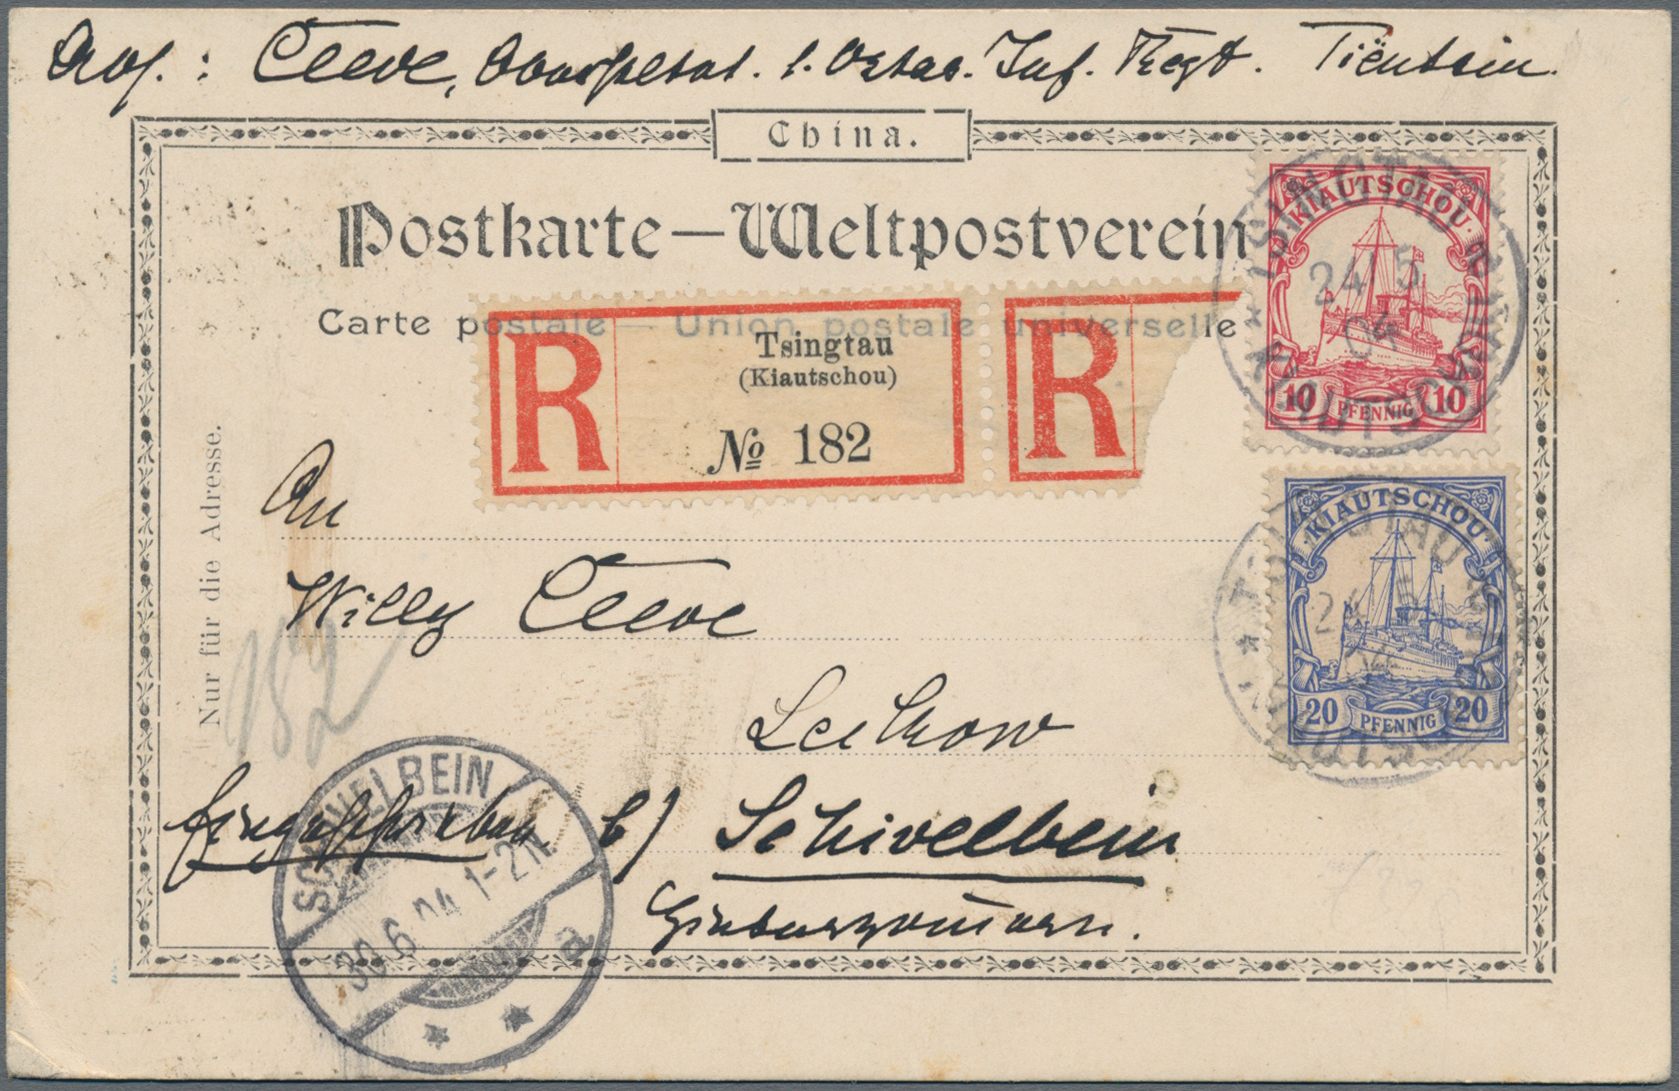 Abs.: Cleve, 1. Ostas. Inf. Regt. Tiëntsin.
China.
Postkarte – Weltpostverein
Carte postale — Union postale universelle
R Tsingtau
(Kiautschou)
№ 182
R
TSINGTAU
KIAUTSCHOU
24 5
04
KIAUTSCHOU
10 PFENNIG 10
TSINGTAU
KIAUTSCHOU
24
KIAUTSCHOU
20 PFENNIG 20
Nur für die Adresse.
An
Willy Cleve
182
Leckow
Eingeschrieben b/ Schivelbein
Hinterpommern.
SCHIVELBEIN
30.6.04.1-2N.
a